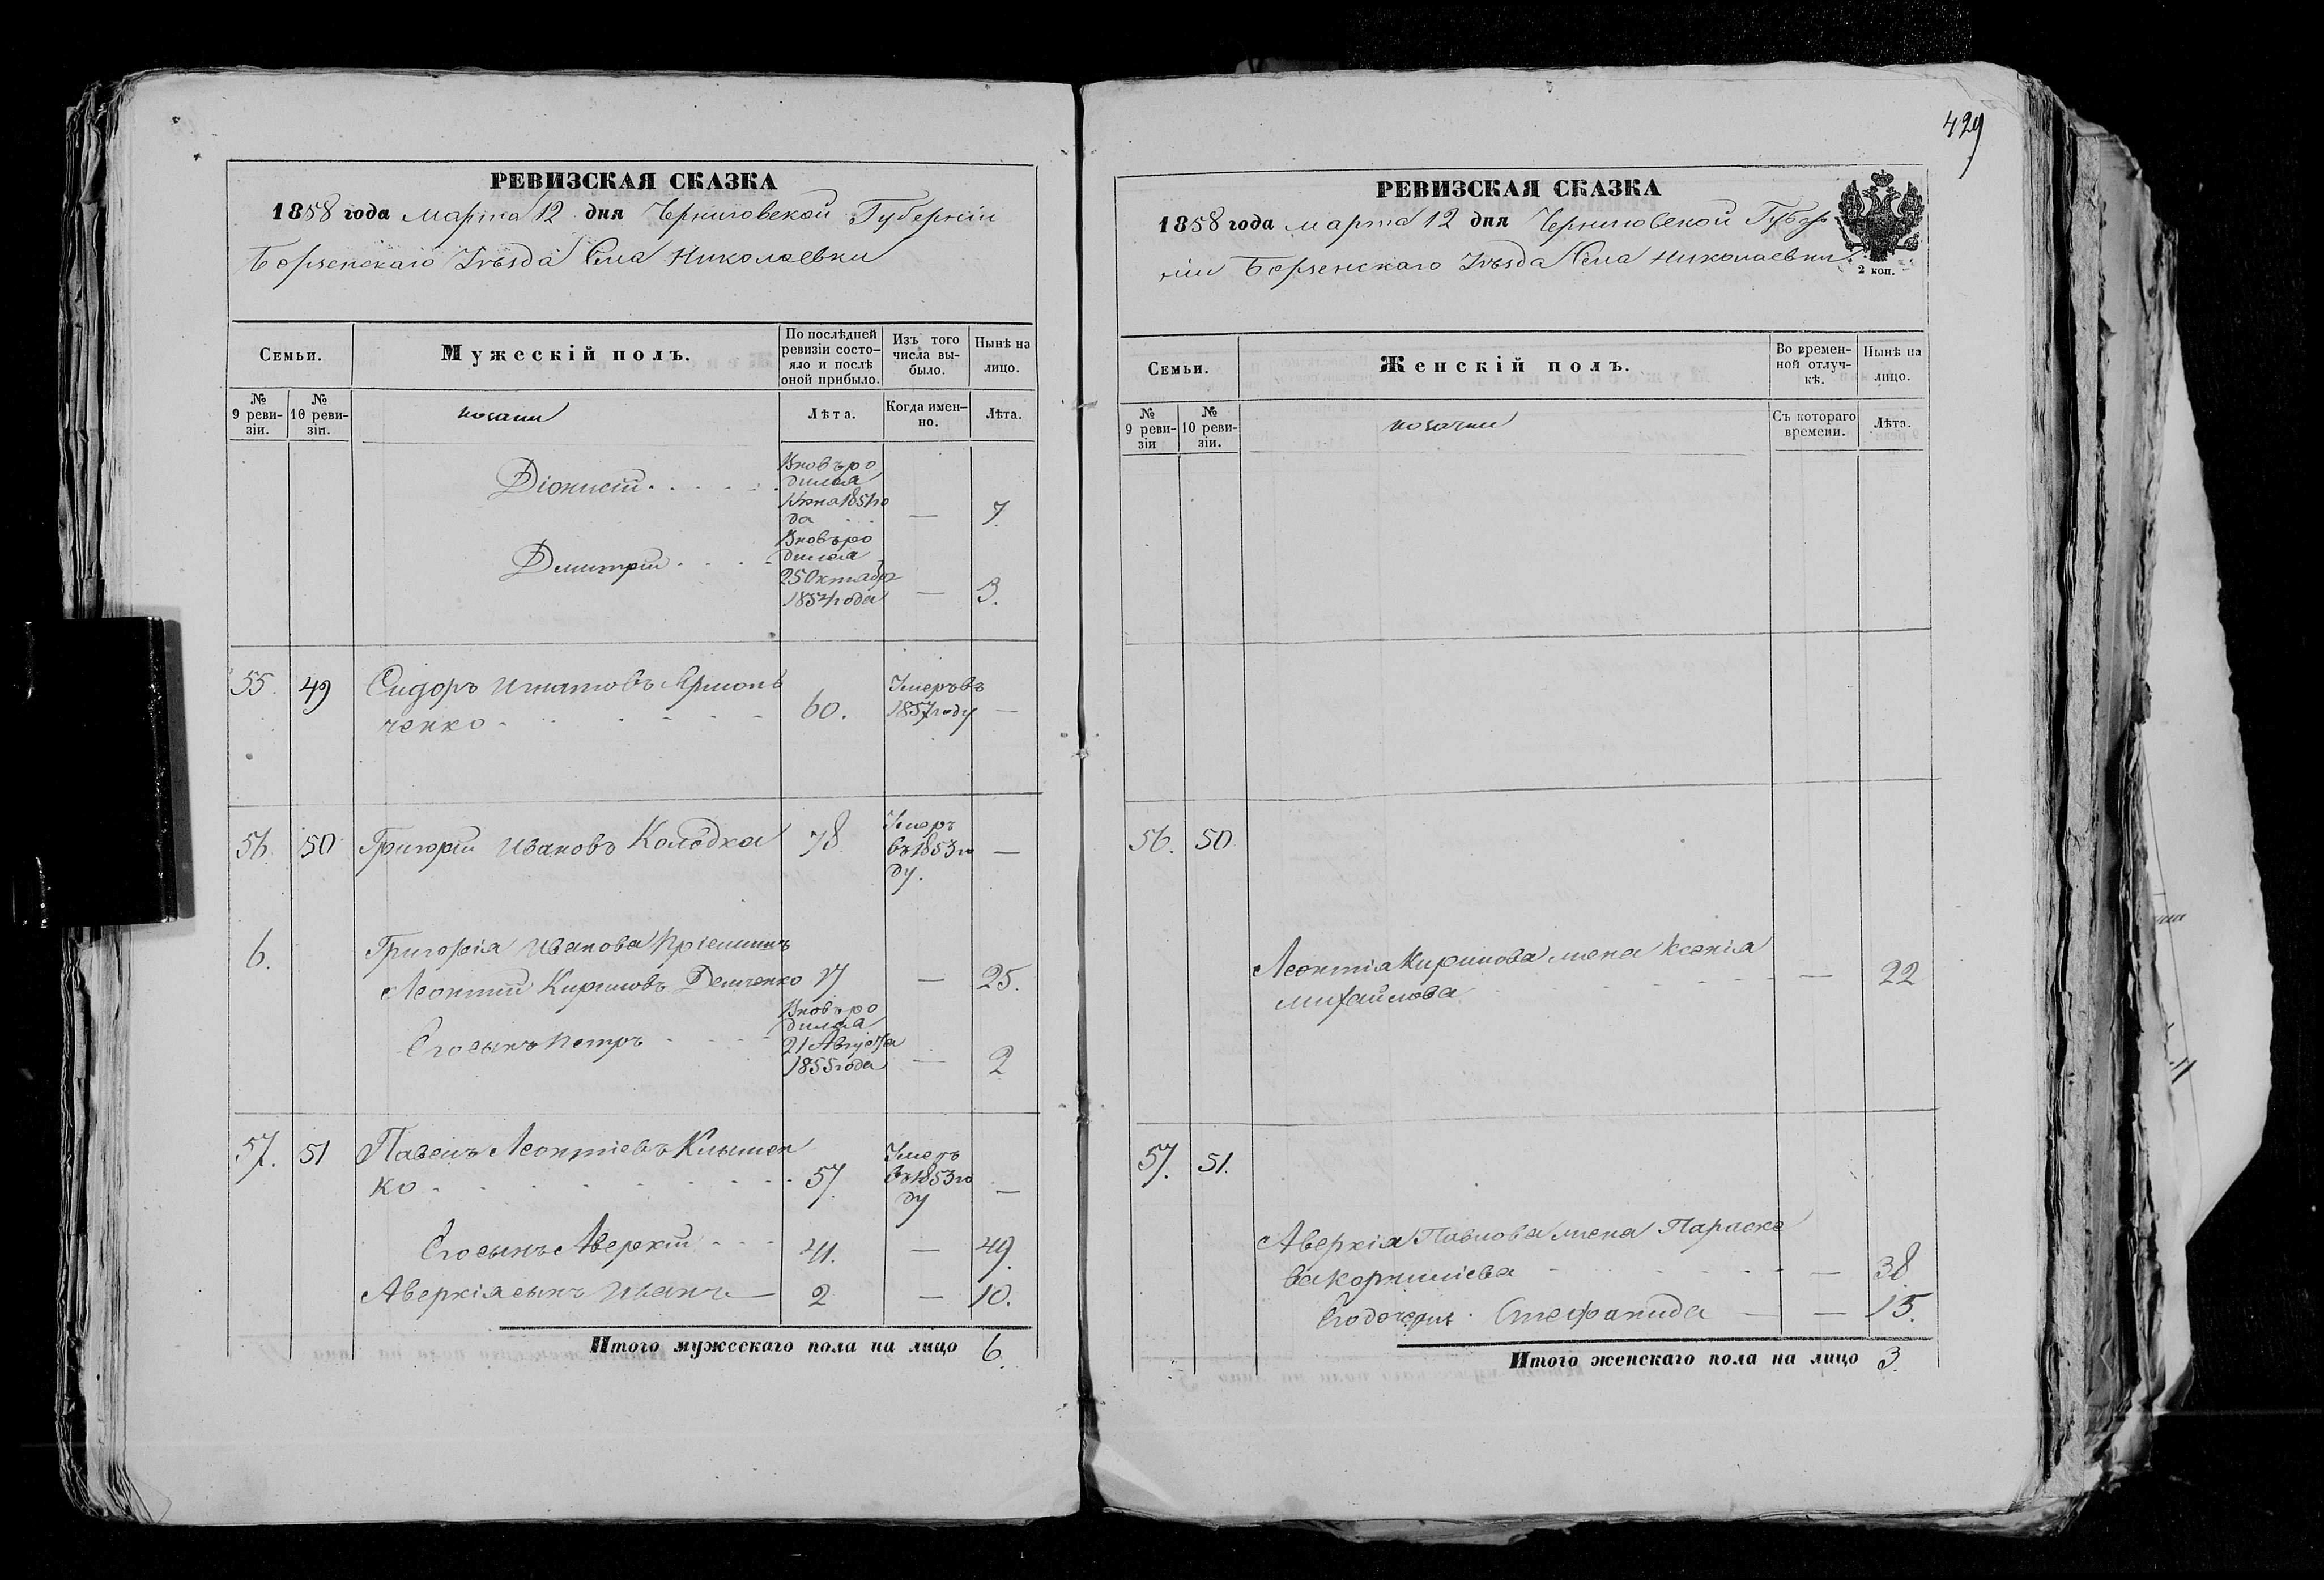 РЕВИЗСКАЯ СКАЗКА
1858 года марта 12 дня Черниговской Губерніи
Борзенскаго Уѣзда Села Николаевки
Семьи.
Мужескій полъ.
По послѣдней ревизіи состо-
яло и послѣ оной прибыло.
Изъ того числа вы-
было.
Нынѣ на лицо.
№ 9 реви-
зіи.
№ 10 реви-
зіи.
козаки
Лѣта.
Когда имен-
но.
Лѣта.
Діонисій
Вновь ро
дился
1851 го
да
— 7.
Дмитрій
Вновь ро
дился
25 Октября
1854 года — 3.
55. 49 Сидоръ Игнатовъ Ярмол
ченко 60. Умеръ въ
1857 году —
56. 50 Григорій Ивановъ Колодка 78 Умеръ
въ 1853 го
ду. —
6. Григорія Иванова пріемышъ
Леонтій Кириловъ Демченко 17 — 25.
Его сынъ Петръ
Вновь ро
дился
21 Августа
1855 года — 2
57. 51 Павелъ Леонтіевъ Клымен
ко 57. Умеръ
въ 1853 го
ду —
Его сынъ Аверкій 41. — 49.
Аверкія сынъ Иванъ — 2 — 10.
Итого мужескаго пола на лицо 6.
429
РЕВИЗСКАЯ СКАЗКА
1858 года марта 12 дня Черниговской Губер
ніи Борзенскаго Уѣзда Села Николаевки
2 коп.
Семьи.
Женскій полъ.
Во времен-
ной отлуч-
кѣ.
Нынѣ на лицо.
№ 9 реви-
зіи
№ 10 реви-
зіи.
козачки
Съ котораго времени.
Лѣта.
56. 50.
Леонтія Кирилова жена Ксенія
Михайлова — 22
57. 51.
Аверкія Павлова жена Параске
ва Корниліева — 38.
Его дочери Стефанида — — 15.
Итого женскаго пола на лицо 3.